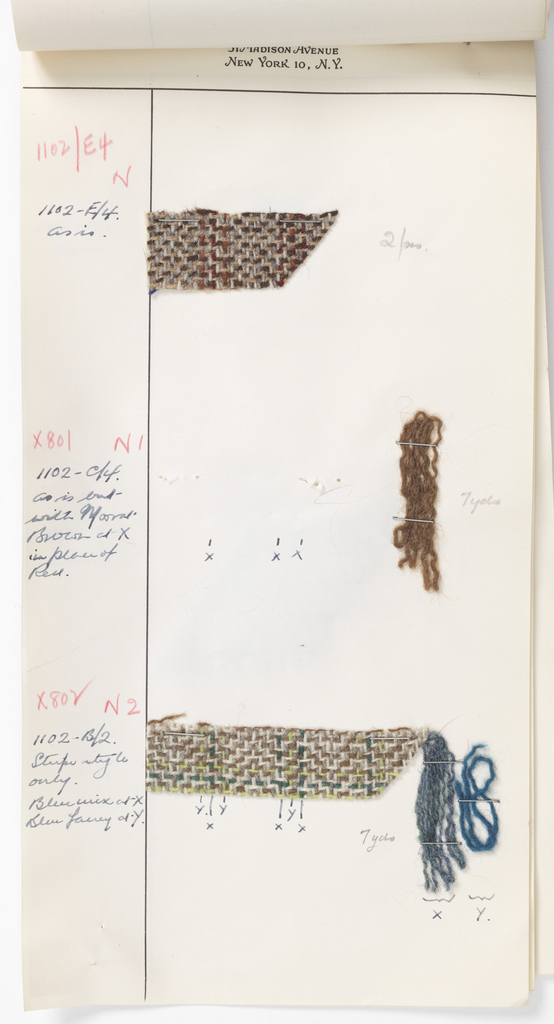 51 MADISON AVENUE
NEW YORK 10, N.Y.
1102/E4
N
1102-E/4.
as is.
X801 N1
1102-C/4.
as is but
with
Brown at X
in place of
Red.
X X X
7 yds
X802 N2
1102-B/2.
Stripe style
only.
Blue mix at X
Blue fancy at Y.
Y. Y Y
X X X
7 yds
X Y.